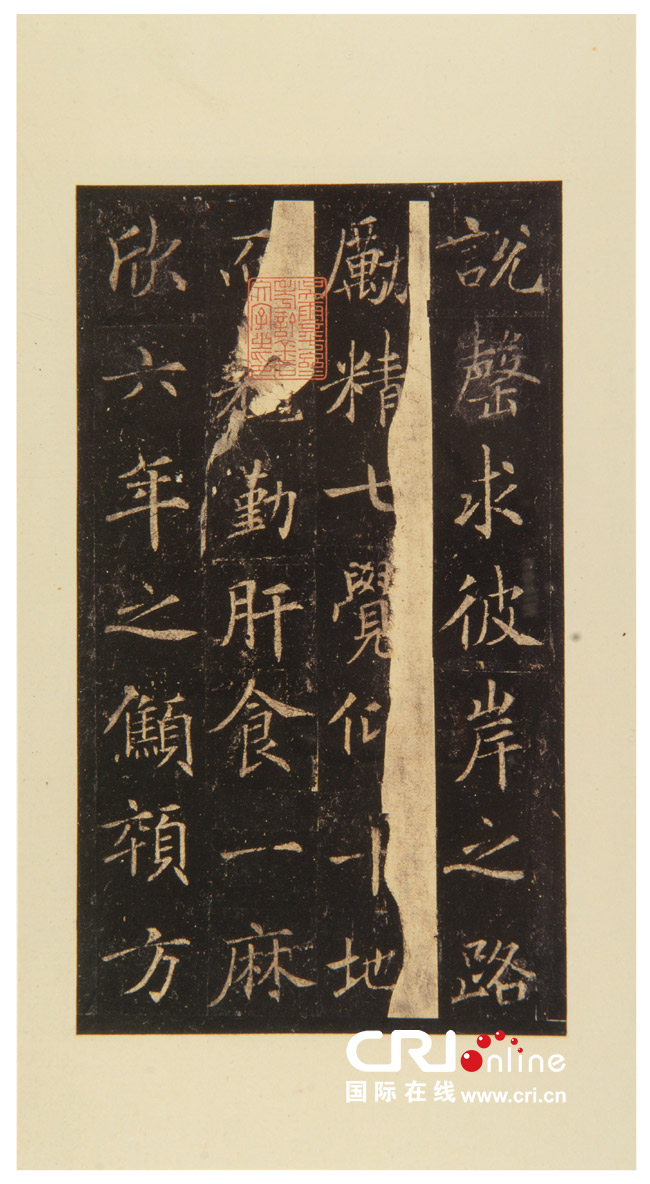 說罄求彼岸之路
勵精七覺仰十地
勤肝食一麻
欣六年之顦顇方
CRI online
国际在线 www.cri.cn